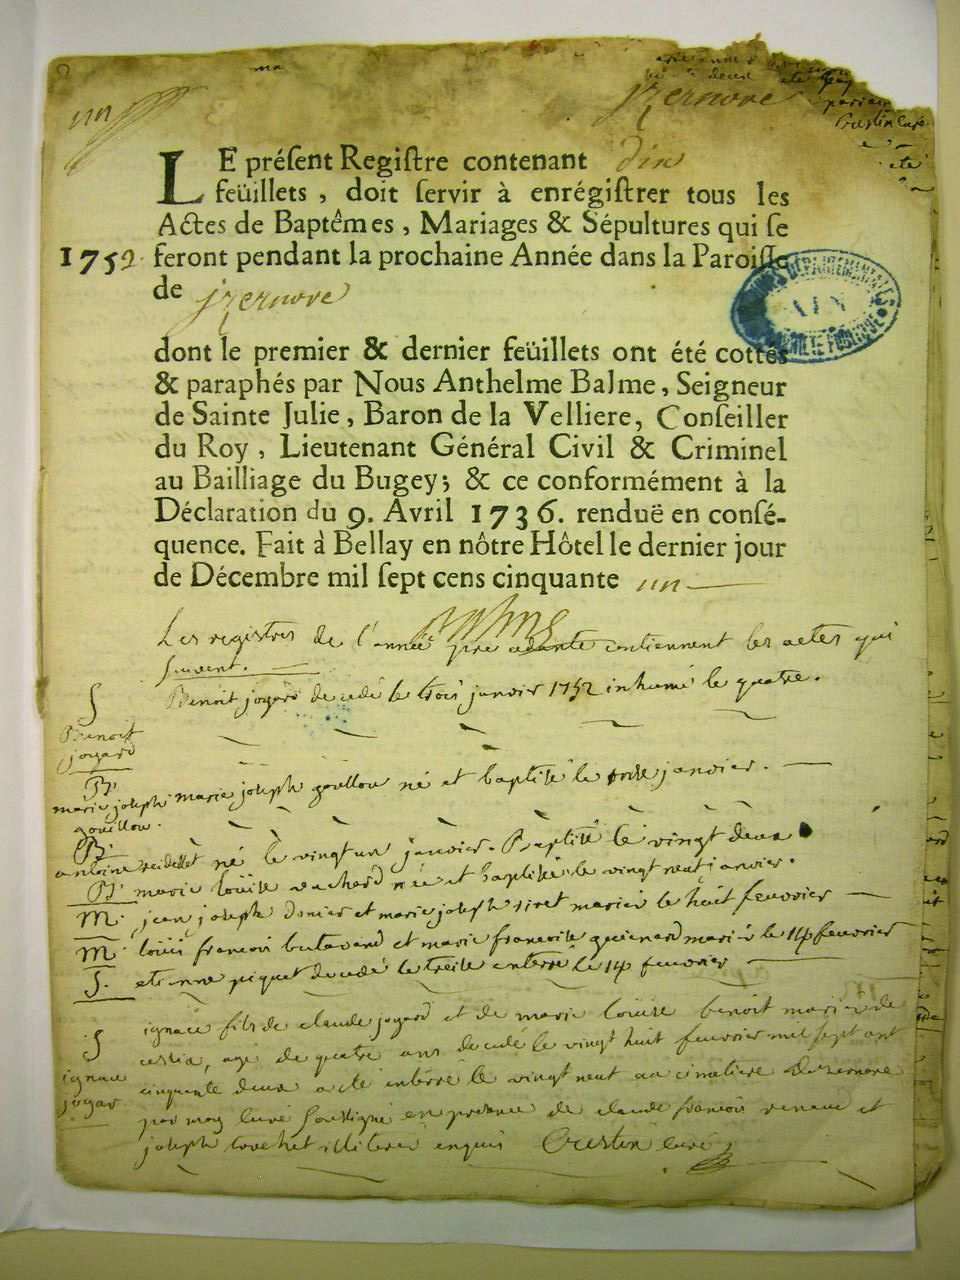 un
jzernore
Crestin curé
LE préſent Regiſtre contenant dix
feüillets, doit ſervir à enrégiſtrer tous les
Actes de Baptêmes, Mariages & Sépultures qui ſe
1752 feront pendant la prochaine Année dans la Paroiſſe
de jzernore
dont le premier & dernier feüillets ont été cottés
& paraphés par Nous Anthelme Balme, Seigneur
de Sainte Julie, Baron de la Velliere, Conſeiller
du Roy, Lieutenant Général Civil & Criminel
au Bailliage du Bugey; & ce conformément à la
Déclaration du 9. Avril 1736. renduë en conſé-
quence. Fait à Bellay en nôtre Hôtel le dernier jour
de Décembre mil ſept cens cinquante un
Les registres de l'année contiennent les actes qui
suivent.
Benoit jogard decedé le trois janvier 1752 inhumé le quatre.
S
Benoit
jogard
B.
marie joseph gouillou né et baptisé le janvier.
marie joseph
gouillou.
B.
antoine né le vingt un janvier. Baptisé le vingt deux
B. marie loüise née et baptisée le vingt neuf janvier.
M. jean joseph et marie joseph mariés le huit feuvrier
M. loüis francois et marie francoise mariés le 14 feuvrier
S. etienne piquet decedé le treise enterré le 14 feuvrier
S
ignace
jogar
ignace fils de claude jogard et de marie loüise benoit mariés de
agé de quatre ans decedé le vingt huit feuvrier mil sept cent
cinquante deux a eté enterré le vingt neuf au cimetiere dizernore
par moy curé soussigné en presence de claude francois et
joseph illiteré enquis Crestin curé